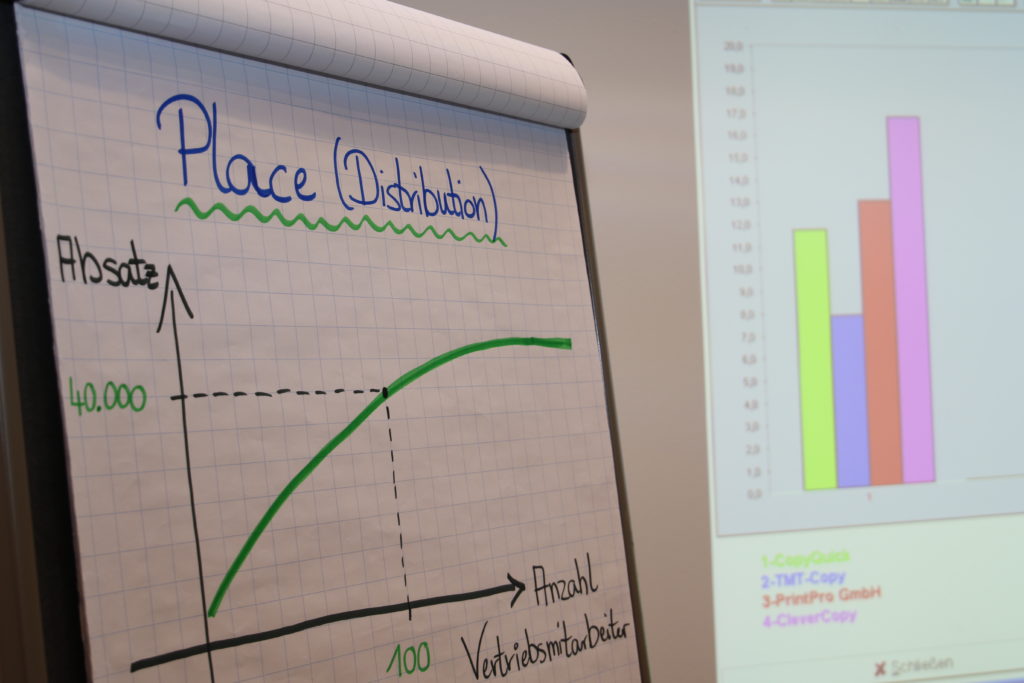 Place (Distribution)
Absatz
40.000
100
Anzahl
Vertriebsmitarbeiter
20,0
19,0
18,0
17,0
16,0
15,0
14,0
13,0
12,0
11,0
10,0
9,0
8,0
7,0
6,0
5,0
4,0
3,0
2,0
1,0
0,0
1
1-CopyQuick
2-TMT-Copy
3-PrintPro GmbH
4-CleverCopy
Schließen